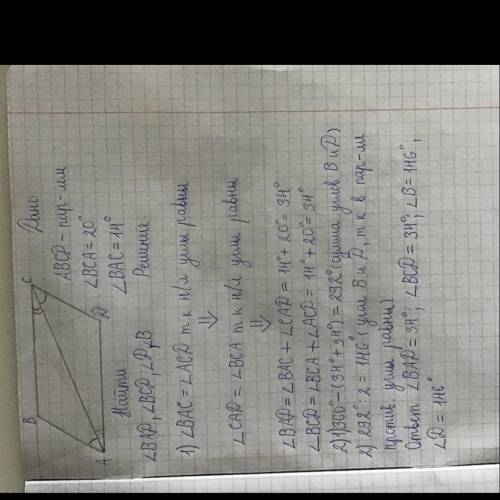 B
C
A
D
Дано
ABCD - пар-мм
∠BCA = 20°
∠BAC = 14°
Найти
∠BAD, ∠BCD, ∠D, ∠B
Решение
1) ∠BAC = ∠ACD т к н/л углы равны
⇓
∠CAD = ∠BCA т к н/л углы равны
⇓
∠BAD = ∠BAC + ∠CAD = 14° + 20° = 34°
∠BCD = ∠BCA + ∠ACD = 14° + 20° = 34°
2) 1) 360° - (34° + 34°) = 292° (сумма углов B и D)
2) 292° : 2 = 146° (углы B и D, т к в пар-мм
против. углы равны)
Ответ ∠BAD = 34°; ∠BCD = 34°; ∠B = 146°;
∠D = 146°